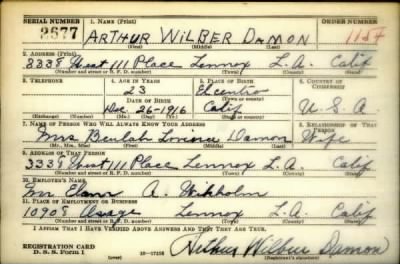 SERIAL NUMBER 1. NAME (Print) ORDER NUMBER
2677 ARTHUR WILBER DAMON
(First) (Middle) (Last)
2. ADDRESS (Print)
3338 West 111 Place Lennox L.A. Calif
(Number and street or R. F. D. number) (Town) (County) (State)
3. TELEPHONE 4. AGE IN YEARS 5. PLACE OF BIRTH 6. COUNTRY OF CITIZENSHIP
23 Elcentro
DATE OF BIRTH (Town or county)
Dec. 26-1916 Calif U.S.A.
(Exchange) (Number) (Mo.) (Day) (Yr.) (State or country)
7. NAME OF PERSON WHO WILL ALWAYS KNOW YOUR ADDRESS 8. RELATIONSHIP OF THAT PERSON
Mrs Beulah Damon Wife
(Mr., Mrs., Miss) (First) (Middle) (Last)
9. ADDRESS OF THAT PERSON
3338 West 111 Place Lennox L.A. Calif
(Number and street or R. F. D. number) (Town) (County) (State)
10. EMPLOYER'S NAME
Mr. A.
11. PLACE OF EMPLOYMENT OR BUSINESS
10908 Osage Lennox L.A. Calif
(Number and street or R. F. D. number) (Town) (County) (State)
I AFFIRM THAT I HAVE VERIFIED ABOVE ANSWERS AND THAT THEY ARE TRUE.
REGISTRATION CARD
D. S. S. Form 1 Arthur Wilber Damon
(Registrant's signature)